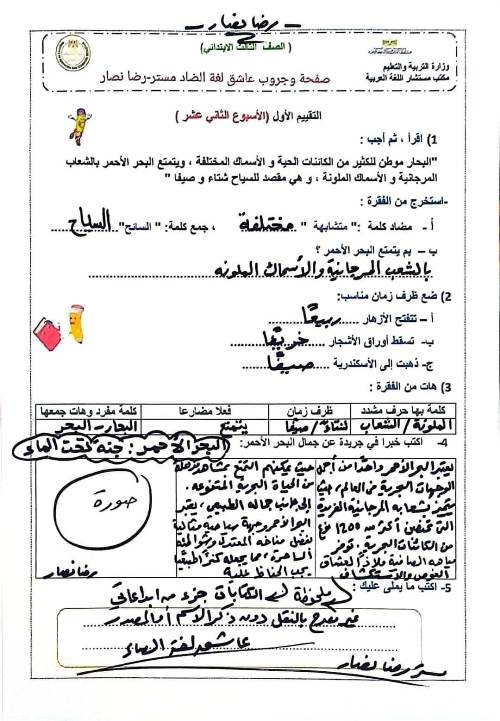 رضا نصار
( الصف الثالث الابتدائي)
وزارة التربية والتعليم
مكتب مستشار اللغة العربية
صفحة وجروب عاشق لغة الضاد مستر-رضا نصار
التقييم الأول (الأسبوع الثاني عشر )
1) اقرأ ، ثم أجب :
"البحار موطن للكثير من الكائنات الحية و الأسماك المختلفة ، ويتمتع البحر الأحمر بالشعاب
المرجانية و الأسماك الملونة ، و هي مقصد للسياح شتاء و صيفا "
-استخرج من الفقرة :
أ - مضاد كلمة :" متشابهة " مختلفة ، جمع كلمة: " السائح" السياح
ب – بم يتمتع البحر الأحمر ؟
بالشعب المرجانية والأسماك الملونه
2) ضع ظرف زمان مناسب:
أ – تتفتح الأزهار ربيعًا
ب- تسقط أوراق الأشجار خريفًا
ج- ذهبت إلى الأسكندرية صيفًا
3) هات من الفقرة :
كلمة بها حرف مشدد ظرف زمان فعلا مضارعا كلمة مفرد وهات جمعها
الملونة / الشعاب شتاءً / صيفًا يتمتع البحار - البحر
4- اكتب خبرا في جريدة عن جمال البحر الأحمر:
البحر الأحمر: جنه تحت الماء
يعتبر البحر الأحمر واحدًا من أجمل
الوجهات البحرية في العالم، حيث
يتميز بشعابه المرجانية الفريدة
التي تحتضن أكثر من 1200 نوع
من الكائنات البحرية. توفر
مياهه الصافية ملاذًا لعشاق
الغوص والاستكشاف
حيث يمكنهم التمتع بمشاهدة
من الحياة البحرية المتنوعه.
إلى جانب جماله الطبيعي، يعتبر
البحر الأحمر وجهة سياحية مثالية
بفضل مناخه المعتدل وشواطئه
الساحرة، مما يجعله كنزًا طبيعيًا
يجب الحفاظ عليه
صورة
رضا نصار
5- اكتب ما يملى عليك :
ملحوظة كل الكتابات جزء من ابداعاتي
غير مصرح بالنقل دون ذكر الاسم أو المصدر
عاشق لغة الضاد
مستر رضا نصار